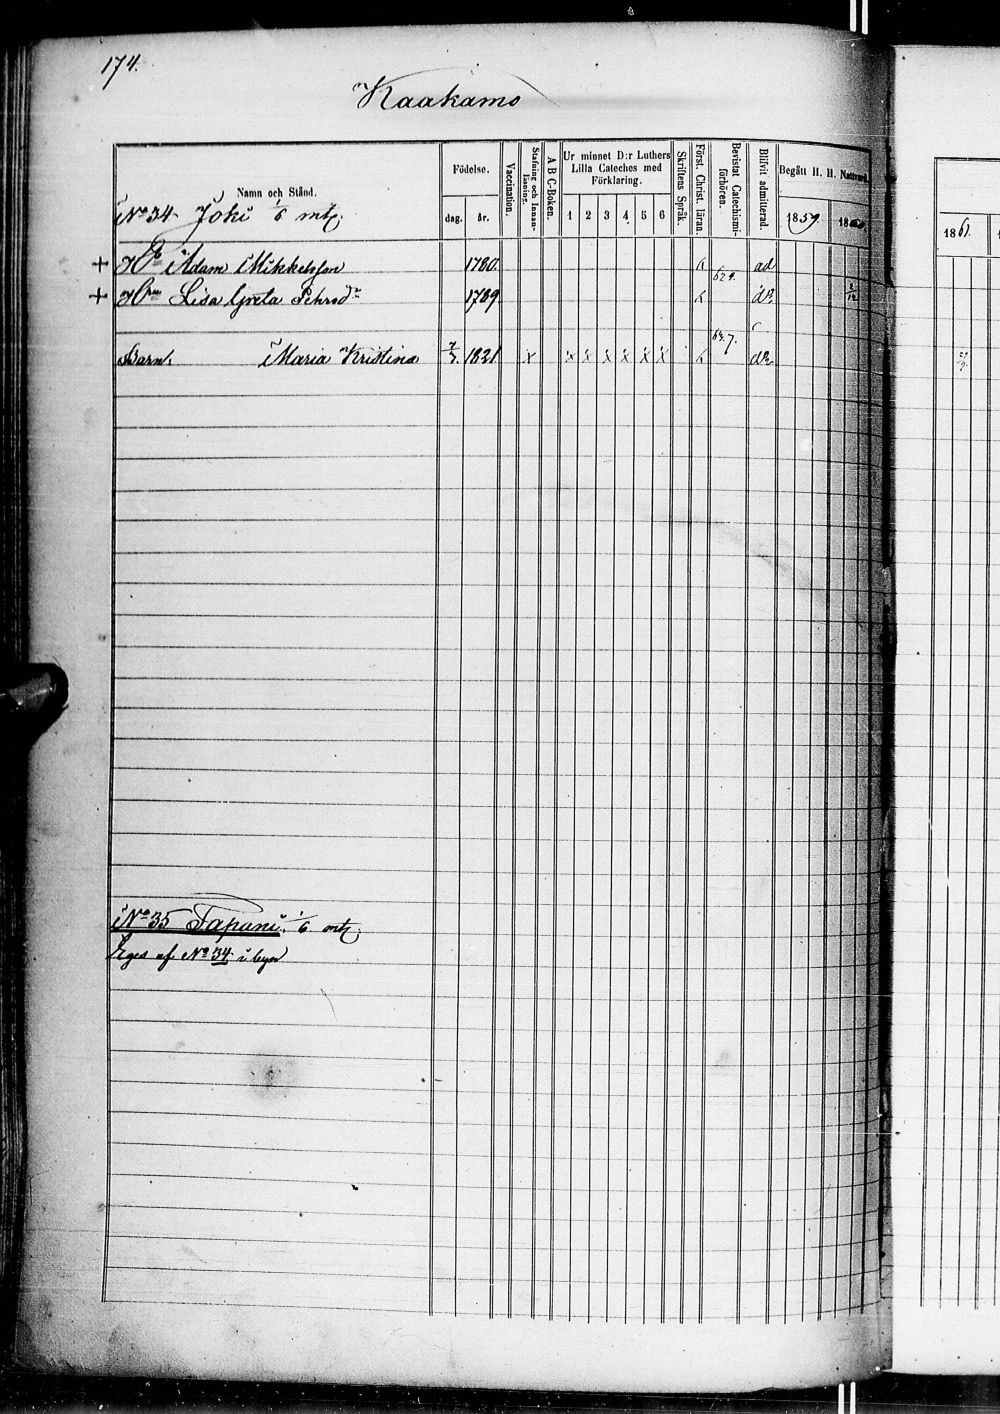 174.
Kaakamo
Namn och Stånd.
Födelse.
dag.
år.
Vaccination.
Stafning och Innanläsning.
A B C-Boken.
Ur minnet D:r Luthers Lilla Cateches med Förklaring.
1 2 3 4 5 6
Skriftens Språk.
Först. Christ. läran.
Bevistat Catechismiförhören.
Blifvit admitterad.
Begått H. H. Nattvard.
1859.
1860
1861.
No 34 Joki 1/6 mtl.
+ Adam Mikkelsson 1780. ad
+ Lisa Greta 1789
Barn. Maria Kristina 1821 x x x x x x x
No 35 Tapani. 1/6 mtl.
Eges af No 34 i byn